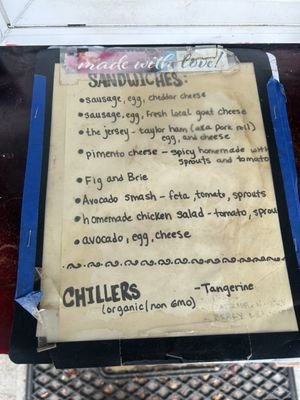 made with love!
SANDWICHES:
• sausage, egg, cheddar cheese
• sausage, egg, fresh local goat cheese
• the jersey - taylor ham (aka pork roll)
egg, and cheese
• pimento cheese - spicy homemade with
sprouts and tomato
• Fig and Brie
• Avocado smash - feta, tomato, sprouts
• homemade chicken salad - tomato, sprou
• avocado, egg, cheese
CHILLERS
(organic/non GMO)
-Tangerine